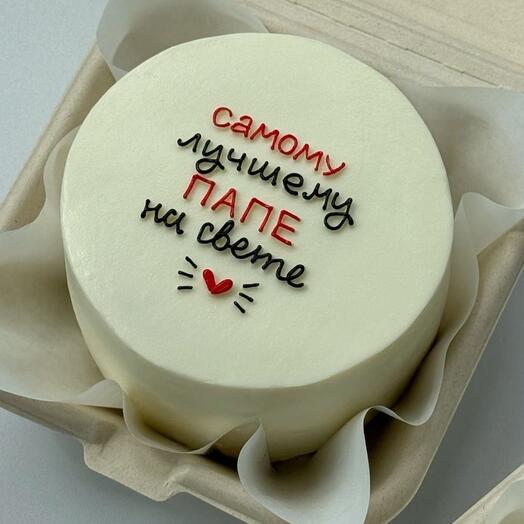 самому
лучшему
ПАПЕ
на свете